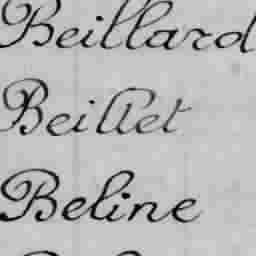 Beillard
Beillet
Beline